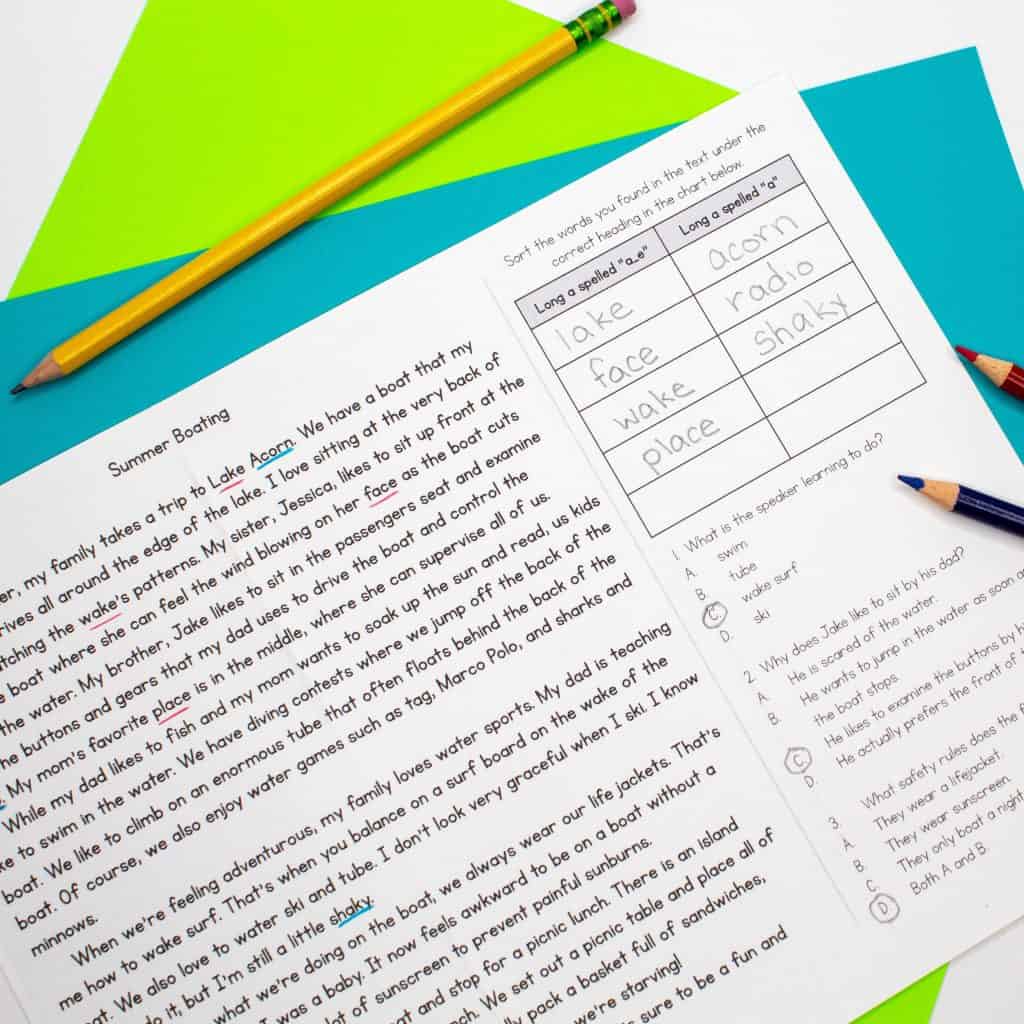 Summer Boating
er, my family takes a trip to Lake Acorn. We have a boat that my
rives all around the edge of the lake. I love sitting at the very back of
tching the wake's patterns. My sister, Jessica, likes to sit up front at the
e boat where she can feel the wind blowing on her face as the boat cuts
the water. My brother, Jake likes to sit in the passengers seat and examine
e buttons and gears that my dad uses to drive the boat and control the
. My mom's favorite place is in the middle, where she can supervise all of us.
While my dad likes to fish and my mom wants to soak up the sun and read, us kids
ke to swim in the water. We have diving contests where we jump off the back of the
boat. We like to climb on an enormous tube that often floats behind the back of the
boat. Of course, we also enjoy water games such as tag, Marco Polo, and sharks and
minnows.
When we're feeling adventurous, my family loves water sports. My dad is teaching
me how to wake surf. That's when you balance on a surf board on the wake of the
oat. We also love to water ski and tube. I don't look very graceful when I ski. I know
do it, but I'm still a little shaky.
what we're doing on the boat, we always wear our life jackets. That's
I was a baby. It now feels awkward to be on a boat without a
lot of sunscreen to prevent painful sunburns.
at and stop for a picnic lunch. There is an island
nch. We set out a picnic table and place all of
lly pack a basket full of sandwiches,
we're starving!
s sure to be a fun and
Sort the words you found in the text under the
correct heading in the chart below.
Long a spelled "a_e" Long a spelled "a"
lake acorn
face radio
wake shaky
place
1. What is the speaker learning to do?
A. swim
B. tube
C. wake surf
D. ski
2. Why does Jake like to sit by his dad?
A. He is scared of the water.
B. He wants to jump in the water as soon a
the boat stops.
C. He likes to examine the buttons by h
D. He actually prefers the front of t
3. What safety rules does the f
A. They wear a lifejacket.
B. They wear sunscreen.
C. They only boat a night
D. Both A and B.